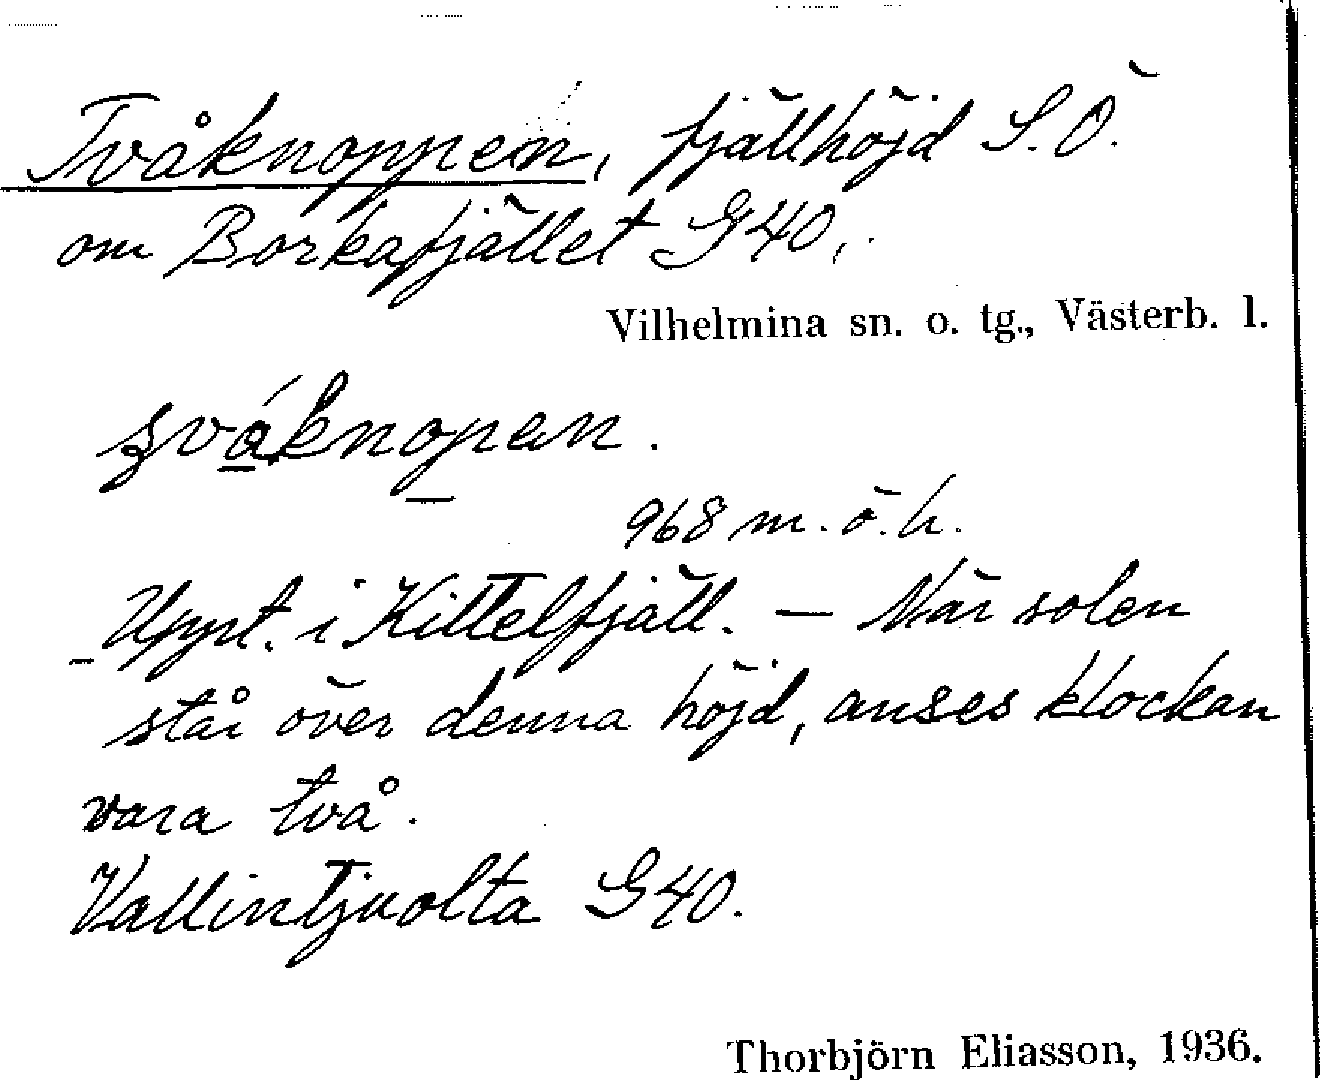 Tvåknoppen, fjällhöjd S.Ö.
om Borkafjället G40.
Vilhelmina sn. o. tg., Västerb. l.
968 m. ö. h.
Uppt. i Kittelfjäll. — När solen
står över denna höjd, anses klockan
vara två.
Vallintjuolta G40.
Thorbjörn Eliasson, 1936.